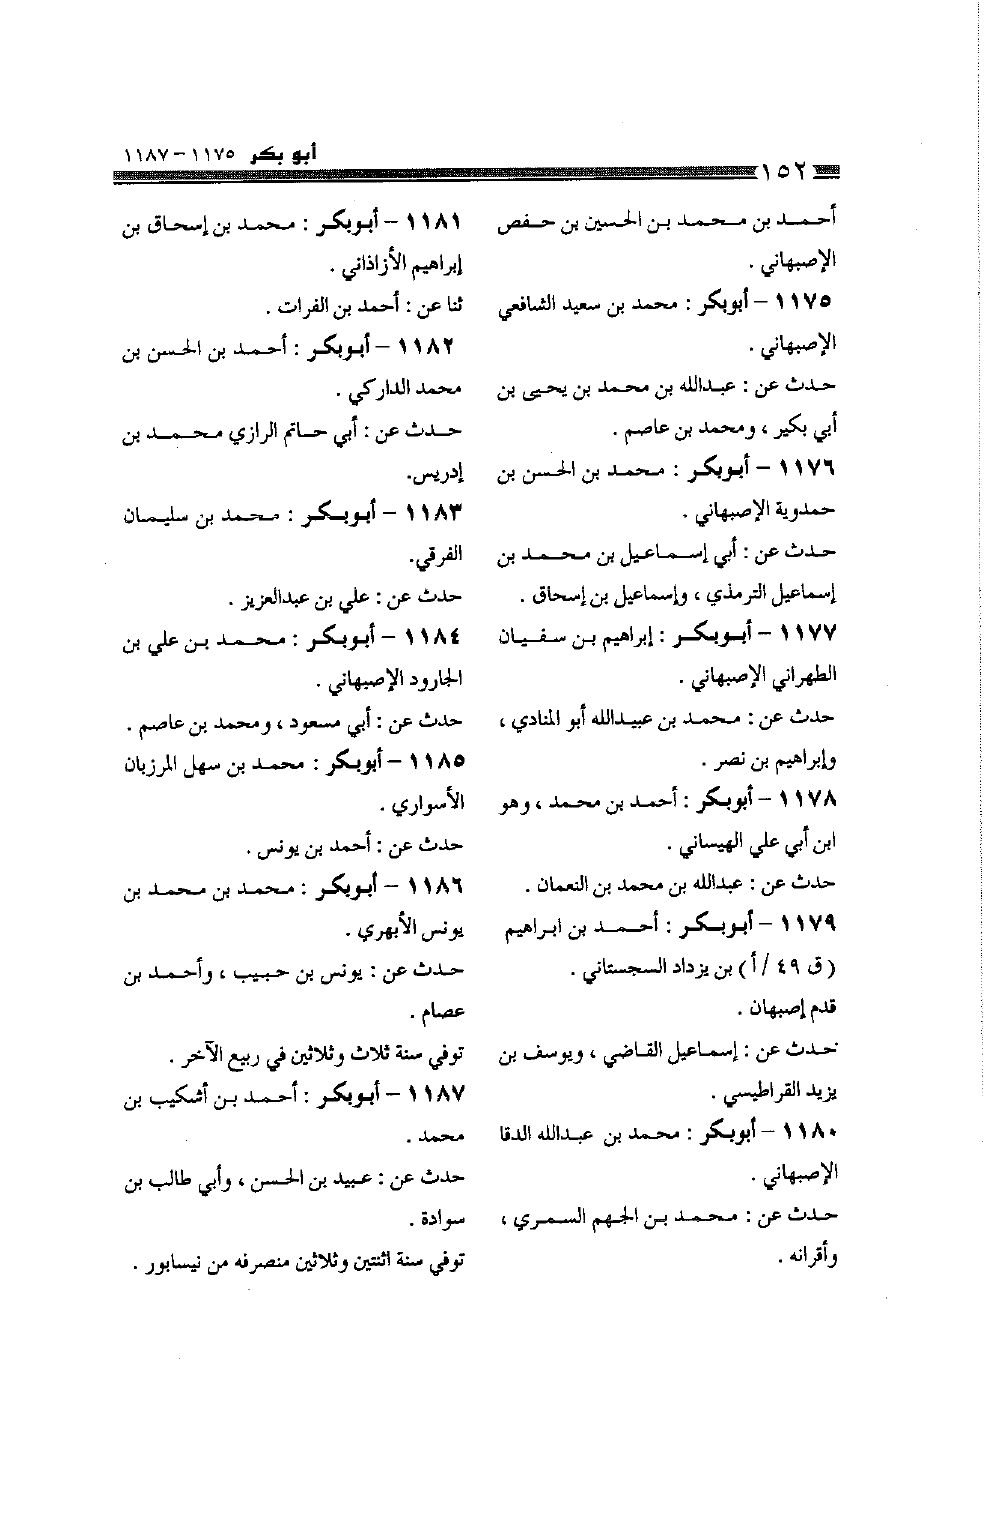 ١٥٢
أبو بكر ١١٧٥ – ١١٨٧
أحمد بن محمد بن الحسين بن حفص
الإصبهاني .
١١٧٥ – أبوبكر : محمد بن سعيد الشافعي
الإصبهاني .
حدث عن : عبدالله بن محمد بن يحيى بن
أبي بكير ، ومحمد بن عاصم .
١١٧٦ – أبوبكر : محمد بن الحسن بن
حمدوية الإصبهاني .
حدث عن : أبي إسماعيل بن محمد بن
إسماعيل الترمذي ، وإسماعيل بن إسحاق .
١١٧٧ – أبوبكر : إبراهيم بن سفيان
الطهراني الإصبهاني .
حدث عن : محمد بن عبيدالله أبو المنادي ،
وإبراهيم بن نصر .
١١٧٨ – أبوبكر : أحمد بن محمد ، وهو
ابن أبي علي الهيساني .
حدث عن : عبدالله بن محمد بن النعمان .
١١٧٩ – أبوبكر : أحمد بن ابراهيم
( ق ٤٩ / أ ) بن يزداد السجستاني .
قدم إصبهان .
حدث عن : إسماعيل القاضي ، ويوسف بن
يزيد القراطيسي .
١١٨٠ – أبوبكر : محمد بن عبدالله الدقا
الإصبهاني .
حدث عن : محمد بن الجهم السمري ،
وأقرانه .
١١٨١ – أبوبكر : محمد بن إسحاق بن
إبراهيم الأزاذاني .
ثنا عن : أحمد بن الفرات .
١١٨٢ – أبوبكر : أحمد بن الحسن بن
محمد الداركي .
حدث عن : أبي حاتم الرازي محمد بن
إدريس.
١١٨٣ – أبوبكر : محمد بن سليمان
الفرقي.
حدث عن : علي بن عبدالعزيز .
١١٨٤ – أبوبكر : محمد بن علي بن
الجارود الإصبهاني .
حدث عن : أبي مسعود ، ومحمد بن عاصم .
١١٨٥ – أبوبكر : محمد بن سهل المرزبان
الأسواري .
حدث عن : أحمد بن يونس .
١١٨٦ – أبوبكر : محمد بن محمد بن
يونس الأبهري .
حدث عن : يونس بن حبيب ، وأحمد بن
عصام .
توفي سنة ثلاث وثلاثين في ربيع الآخر .
١١٨٧ – أبوبكر : أحمد بن أشكيب بن
محمد .
حدث عن : عبيد بن الحسن ، وأبي طالب بن
سوادة .
توفي سنة اثنتين وثلاثين منصرفه من نيسابور .